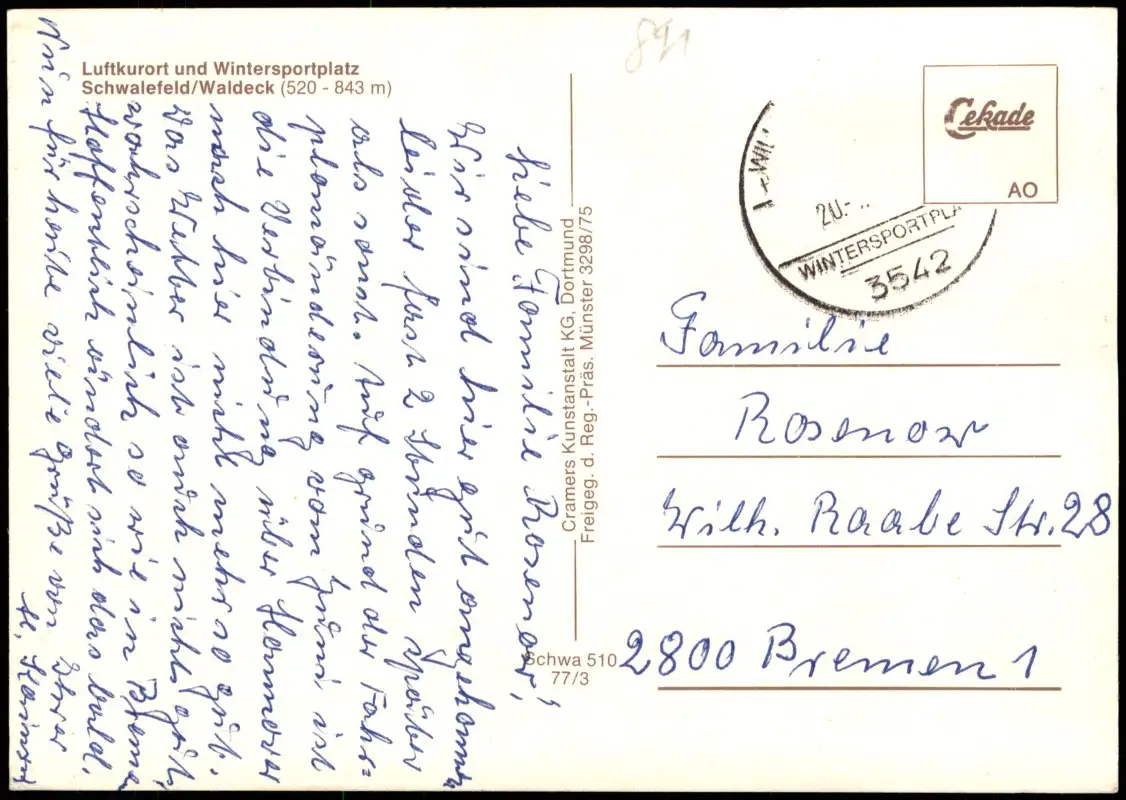 Luftkurort und Wintersportplatz
Schwalefeld/Waldeck (520 - 843 m)
Liebe Familie Rosenow,
Wir sind hier gut angekommen
leider fast 2 Stunden später
als sonst. Auf grund der Fahr=
planänderung vom Juni ist
die Verbindung über Hannover
nach hier nicht mehr so gut.
Das Wetter ist auch nicht gut,
wahrscheinlich so wie in Bremen
Hoffentlich ändert sich das bald.
Nun für heute viele Grüße von Ihrer
H.
Cramers Kunstanstalt KG, Dortmund
Freigeg. d. Reg.-Präs. Münster 3298/75
Schwa 510
77/3
891
Cekade
AO
20.-
WINTERSPORTPLA
3542
Familie
Rosenow
Wilh. Raabe Str. 28
2800 Bremen 1